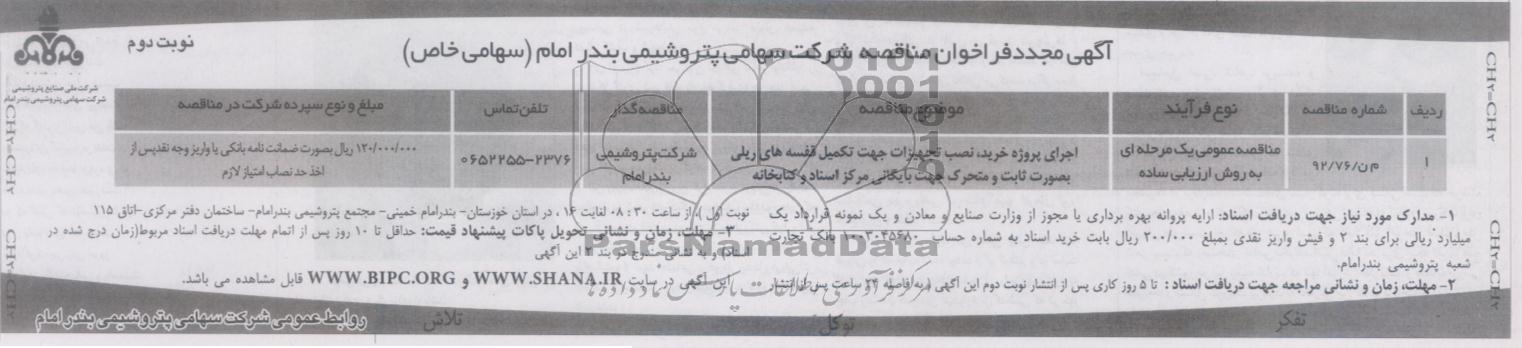 آگهی مجددفراخوان مناقصه شرکت سهامی پتروشیمی بندر امام (سهامی خاص)
نوبت دوم
شرکت ملی صنایع پتروشیمی
شرکت سهامی پتروشیمی بندر امام
ردیف شماره مناقصه نوع فرآیند موضوع مناقصه مناقصه گذار تلفن تماس مبلغ و نوع سپرده شرکت در مناقصه
۱ م ن/۹۲/۷۶ مناقصه عمومی یک مرحله ای به روش ارزیابی ساده اجرای پروژه خرید، نصب تجهیزات جهت تکمیل قفسه های ریلی بصورت ثابت و متحرک جهت بایگانی مرکز اسناد و کتابخانه شرکت پتروشیمی بندرامام ۰۶۵۲۲۵۵-۲۳۷۶ ۱۲۰/۰۰۰/۰۰۰ ریال بصورت ضمانت نامه بانکی یا واریز وجه نقد پس از اخذ حد نصاب امتیاز لازم
۱- مدارک مورد نیاز جهت دریافت اسناد: ارایه پروانه بهره برداری یا مجوز از وزارت صنایع و معادن و یک نمونه قرارداد یک
میلیارد ریالی برای بند ۲ و فیش واریز نقدی بمبلغ ۲۰۰/۰۰۰ ریال بابت خرید اسناد به شماره حساب ۱۰۰۳۰۴۵۶۸۰ بانک تجارت
شعبه پتروشیمی بندرامام.
۲- مهلت، زمان و نشانی مراجعه جهت دریافت اسناد : تا ۵ روز کاری پس از انتشار نوبت دوم این آگهی ( به فاصله ۲۴ ساعت پس از انتشار
نوبت اول )، از ساعت ۰۸:۳۰ لغایت ۱۶ ، در استان خوزستان- بندرامام خمینی- مجتمع پتروشیمی بندرامام- ساختمان دفتر مرکزی-اتاق ۱۱۵
۳- مهلت، زمان و نشانی تحویل پاکات پیشنهاد قیمت: حداقل تا ۱۰ روز پس از اتمام مهلت دریافت اسناد مربوط(زمان درج شده در
اسناد) و به نشانی مندرج در بند ۲ این آگهی
این آگهی در سایت WWW.SHANA.IR و WWW.BIPC.ORG قابل مشاهده می باشد.
تفکر توکل تلاش
روابط عمومی شرکت سهامی پتروشیمی بندر امام
CH۲=CH۲
CH۲=CH۲
CH۲=CH۲
CH۲=CH۲
ParsNamadData
مرکز فرآوری اطلاعات پارس نماد داده ها